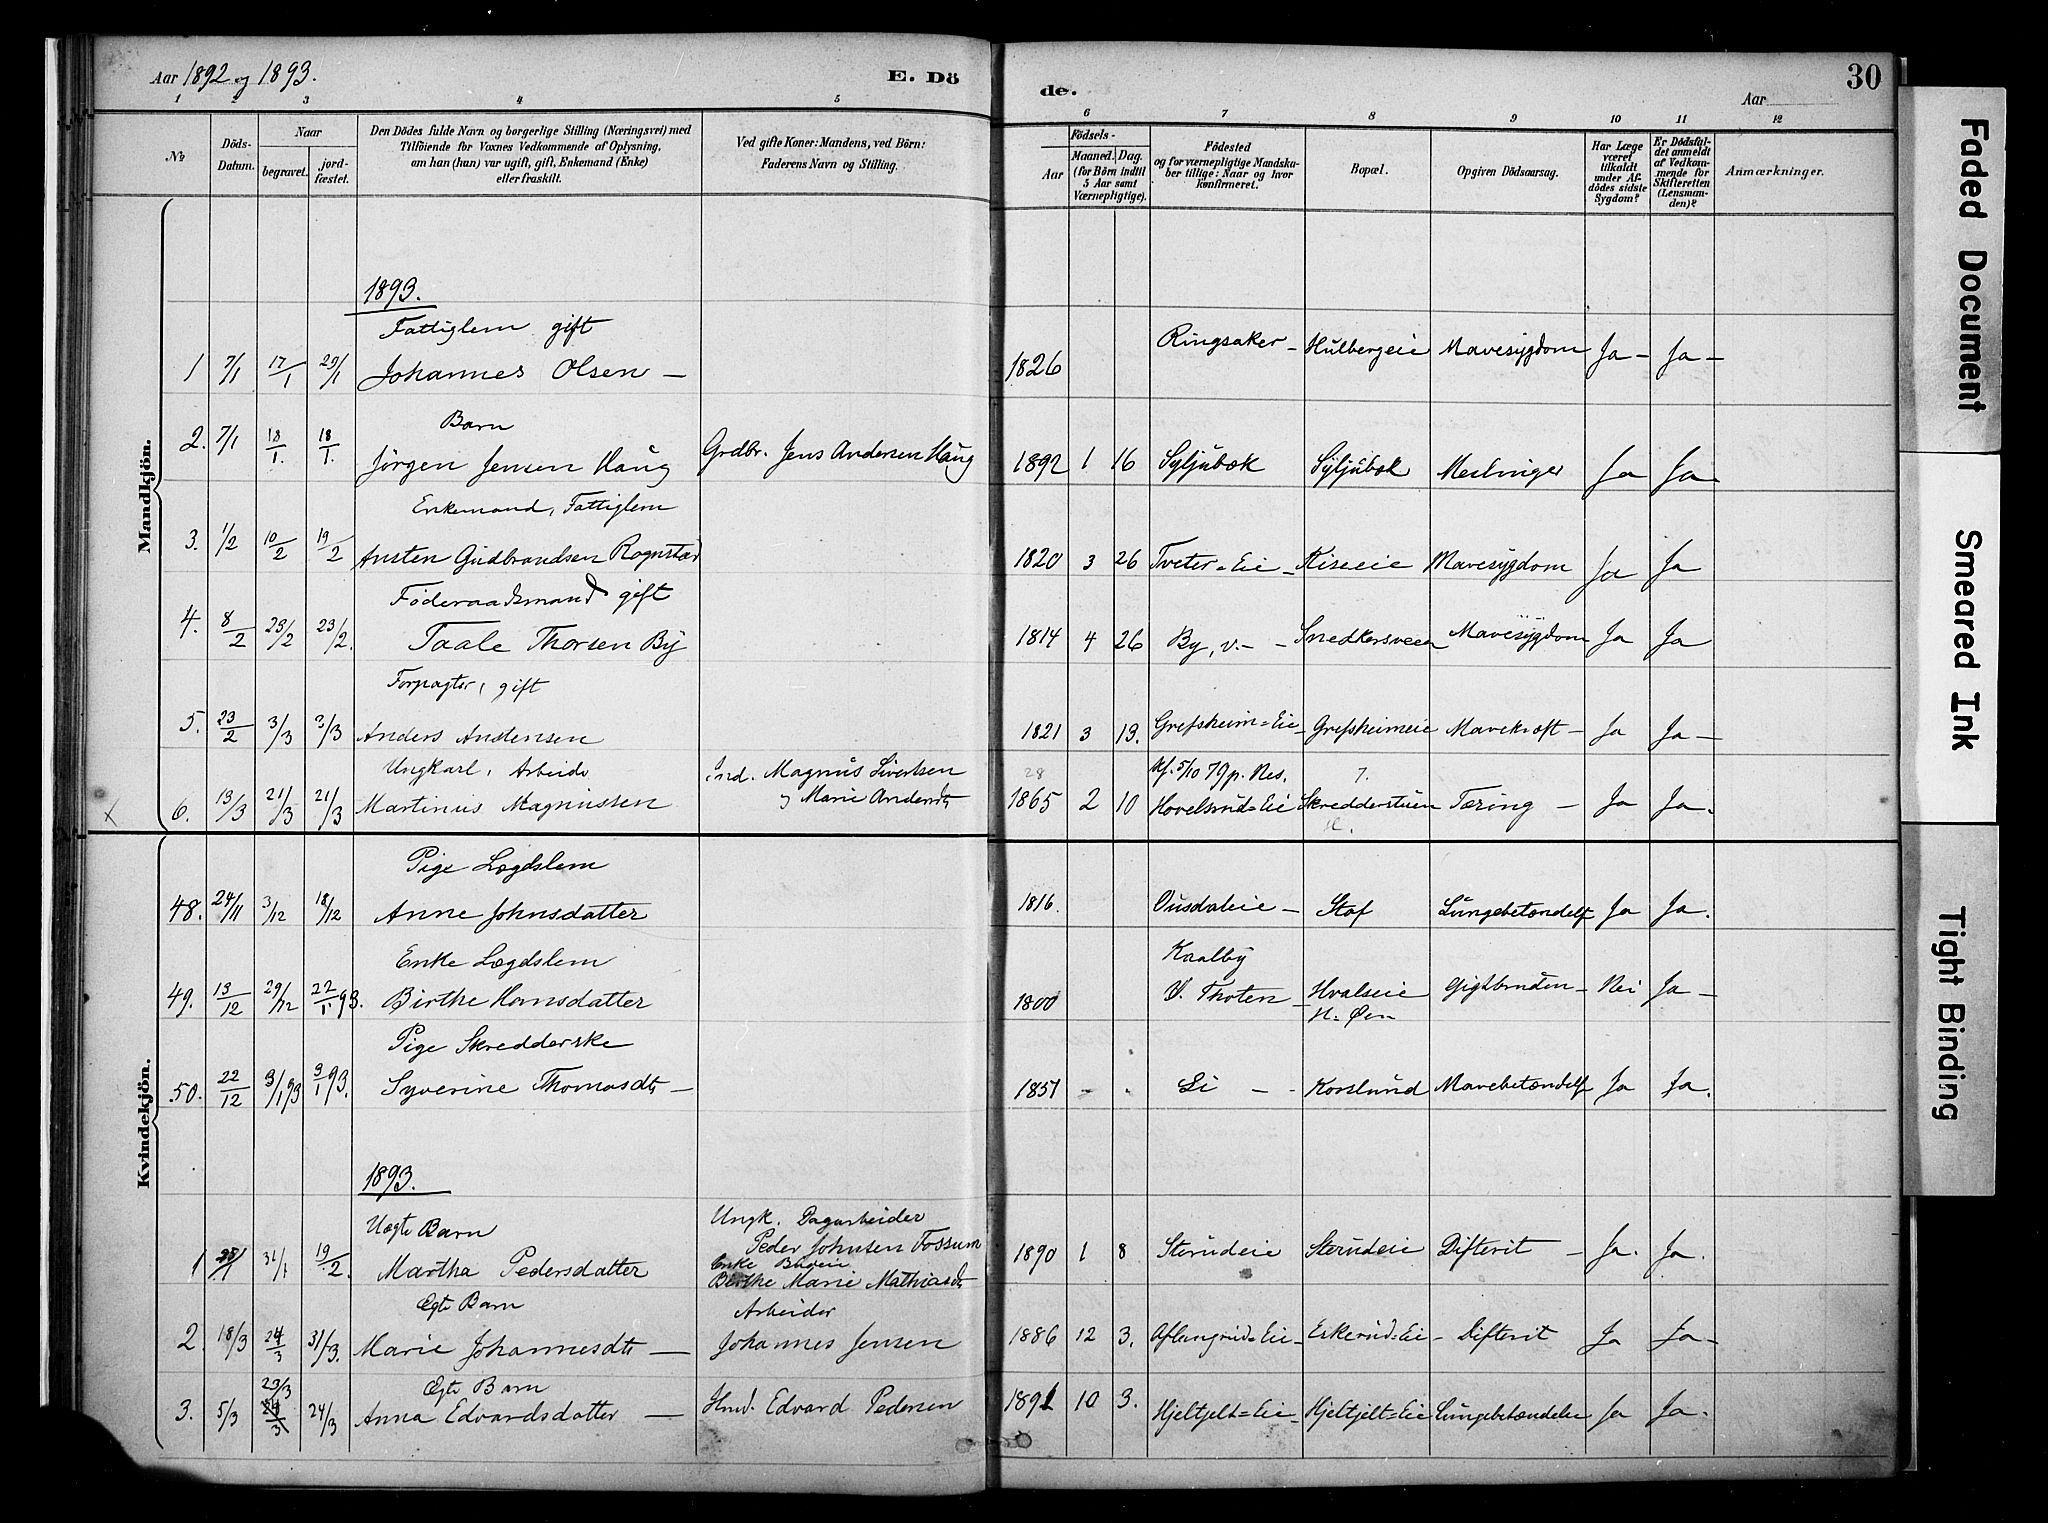 Aar 1892 og 1893.
E. Dö
de.
Aar
30
1 2 3 4 5 6 7 8 9 10 11 12
No.
Döds-Datum.
Naar
begravet.
jord-fæstet.
Den Dödes fulde Navn og borgerlige Stilling (Næringsvei) med
Tilföiende for Voxnes Vedkommende af Oplysning,
om han (hun) var ugift, gift, Enkemand (Enke)
eller fraskilt.
Ved gifte Koner: Mandens, ved Börn:
Faderens Navn og Stilling.
Födsels-
Aar
Maaned. Dag.
(for Börn indtil
5 Aar samt
Værnepligtige).
Födested
og for værnepligtige Mandska-
ber tillige: Naar og hvor
konfirmeret.
Bopæl.
Opgiven Dödsaarsag.
Har Læge
været
tilkaldt
under Af-
dödes sidste
Sygdom?
Er Dödsfal-
det anmeldt
af Vedkom-
mende for
Skifteretten
(Lensman-
den)?
Anmærkninger.
Mandkjön.
1893.
Fattiglem gift
1 7/1 17/1 29/1 Johannes Olsen — 1826 Ringsaker — Hulbergeie Mavesygdom Ja — Ja —
Barn
2. 7/1 18/1. 18/1. Jörgen Jensen Haug Grdbr. Jens Andersen Haug 1892 1 16 Syljubæk Syljubæk Meslinger Ja Ja.
Enkemand, Fattiglem
3. 1/2 10/2 19/2 Austen Gudbrandsen Rognstad 1820 3 26 Tveter=Eie — Kiseeie Mavesygdom Ja Ja
Föderaadsmand gift
4. 8/2 23/2 23/2. Taale Thorsen By 1814 4 26 By, v. — Snedkersveen Mavesygdom Ja Ja
Forpagter, gift
5. 23/2 3/3 3/3 Anders Austensen 1821 3 13. Grefsheim=Eie — Grefsheimeie Mavekræft — Ja Ja —
Ungkarl, Arbeider
Ind. Magnus Sivertsen
28
kf. 5/10 79 p. Nes. 7.
x 6. 13/3 21/3 21/3 Martinus Magnussen og Marie Andersdt 1865 2 10 Hovelsrud=Eie Skredderstuen Tæring — Ja Ja.
Kvindekjön.
Pige Lægdslem
48. 24/11 3/12 18/12 Anne Johnsdatter 1816. — Staf Lungebetændelse Ja Ja.
Enke Lægdslem
Kaalby
49. 13/12 29/12 22/1 93. Birthe Hansdatter 1800 V. Thoten — Hvalseie Gigtbruden — Nei Ja —
H. Øen
Pige Skredderske
50. 22/12 3/1 93 3/1 93. Syverine Thomasdt — 1851 - . Li — Korslund Mavebetændelse Ja Ja.
1893.
Uægte Barn
Ungk. Dagarbeider
Peder Johnsen Fossum
1 31/1 19/2. Martha Pedersdatter 1890 1 8 Sterudeie Sterudeie Difterit — Ja. Ja.
Enke
Birthe Marie Mathiasdt
Ægte Barn
Arbeider
2. 18/3 24/3 31/3. Marie Johannesdt — Johannes Jensen 1886 12 3. Aflangrud=Eie — Eskerud=Eie — Difterit Ja Ja —
Ægte Barn
23/3
3. 5/3 24/3 24/3 Anna Edvardsdatter — Hmd. Edvard Pedersen 1891 10 3. Hjeltjelt=Eie — Hjeltjelt=Eie Lungebetændelse Ja Ja.
Faded Document
Smeared Ink
Tight Binding